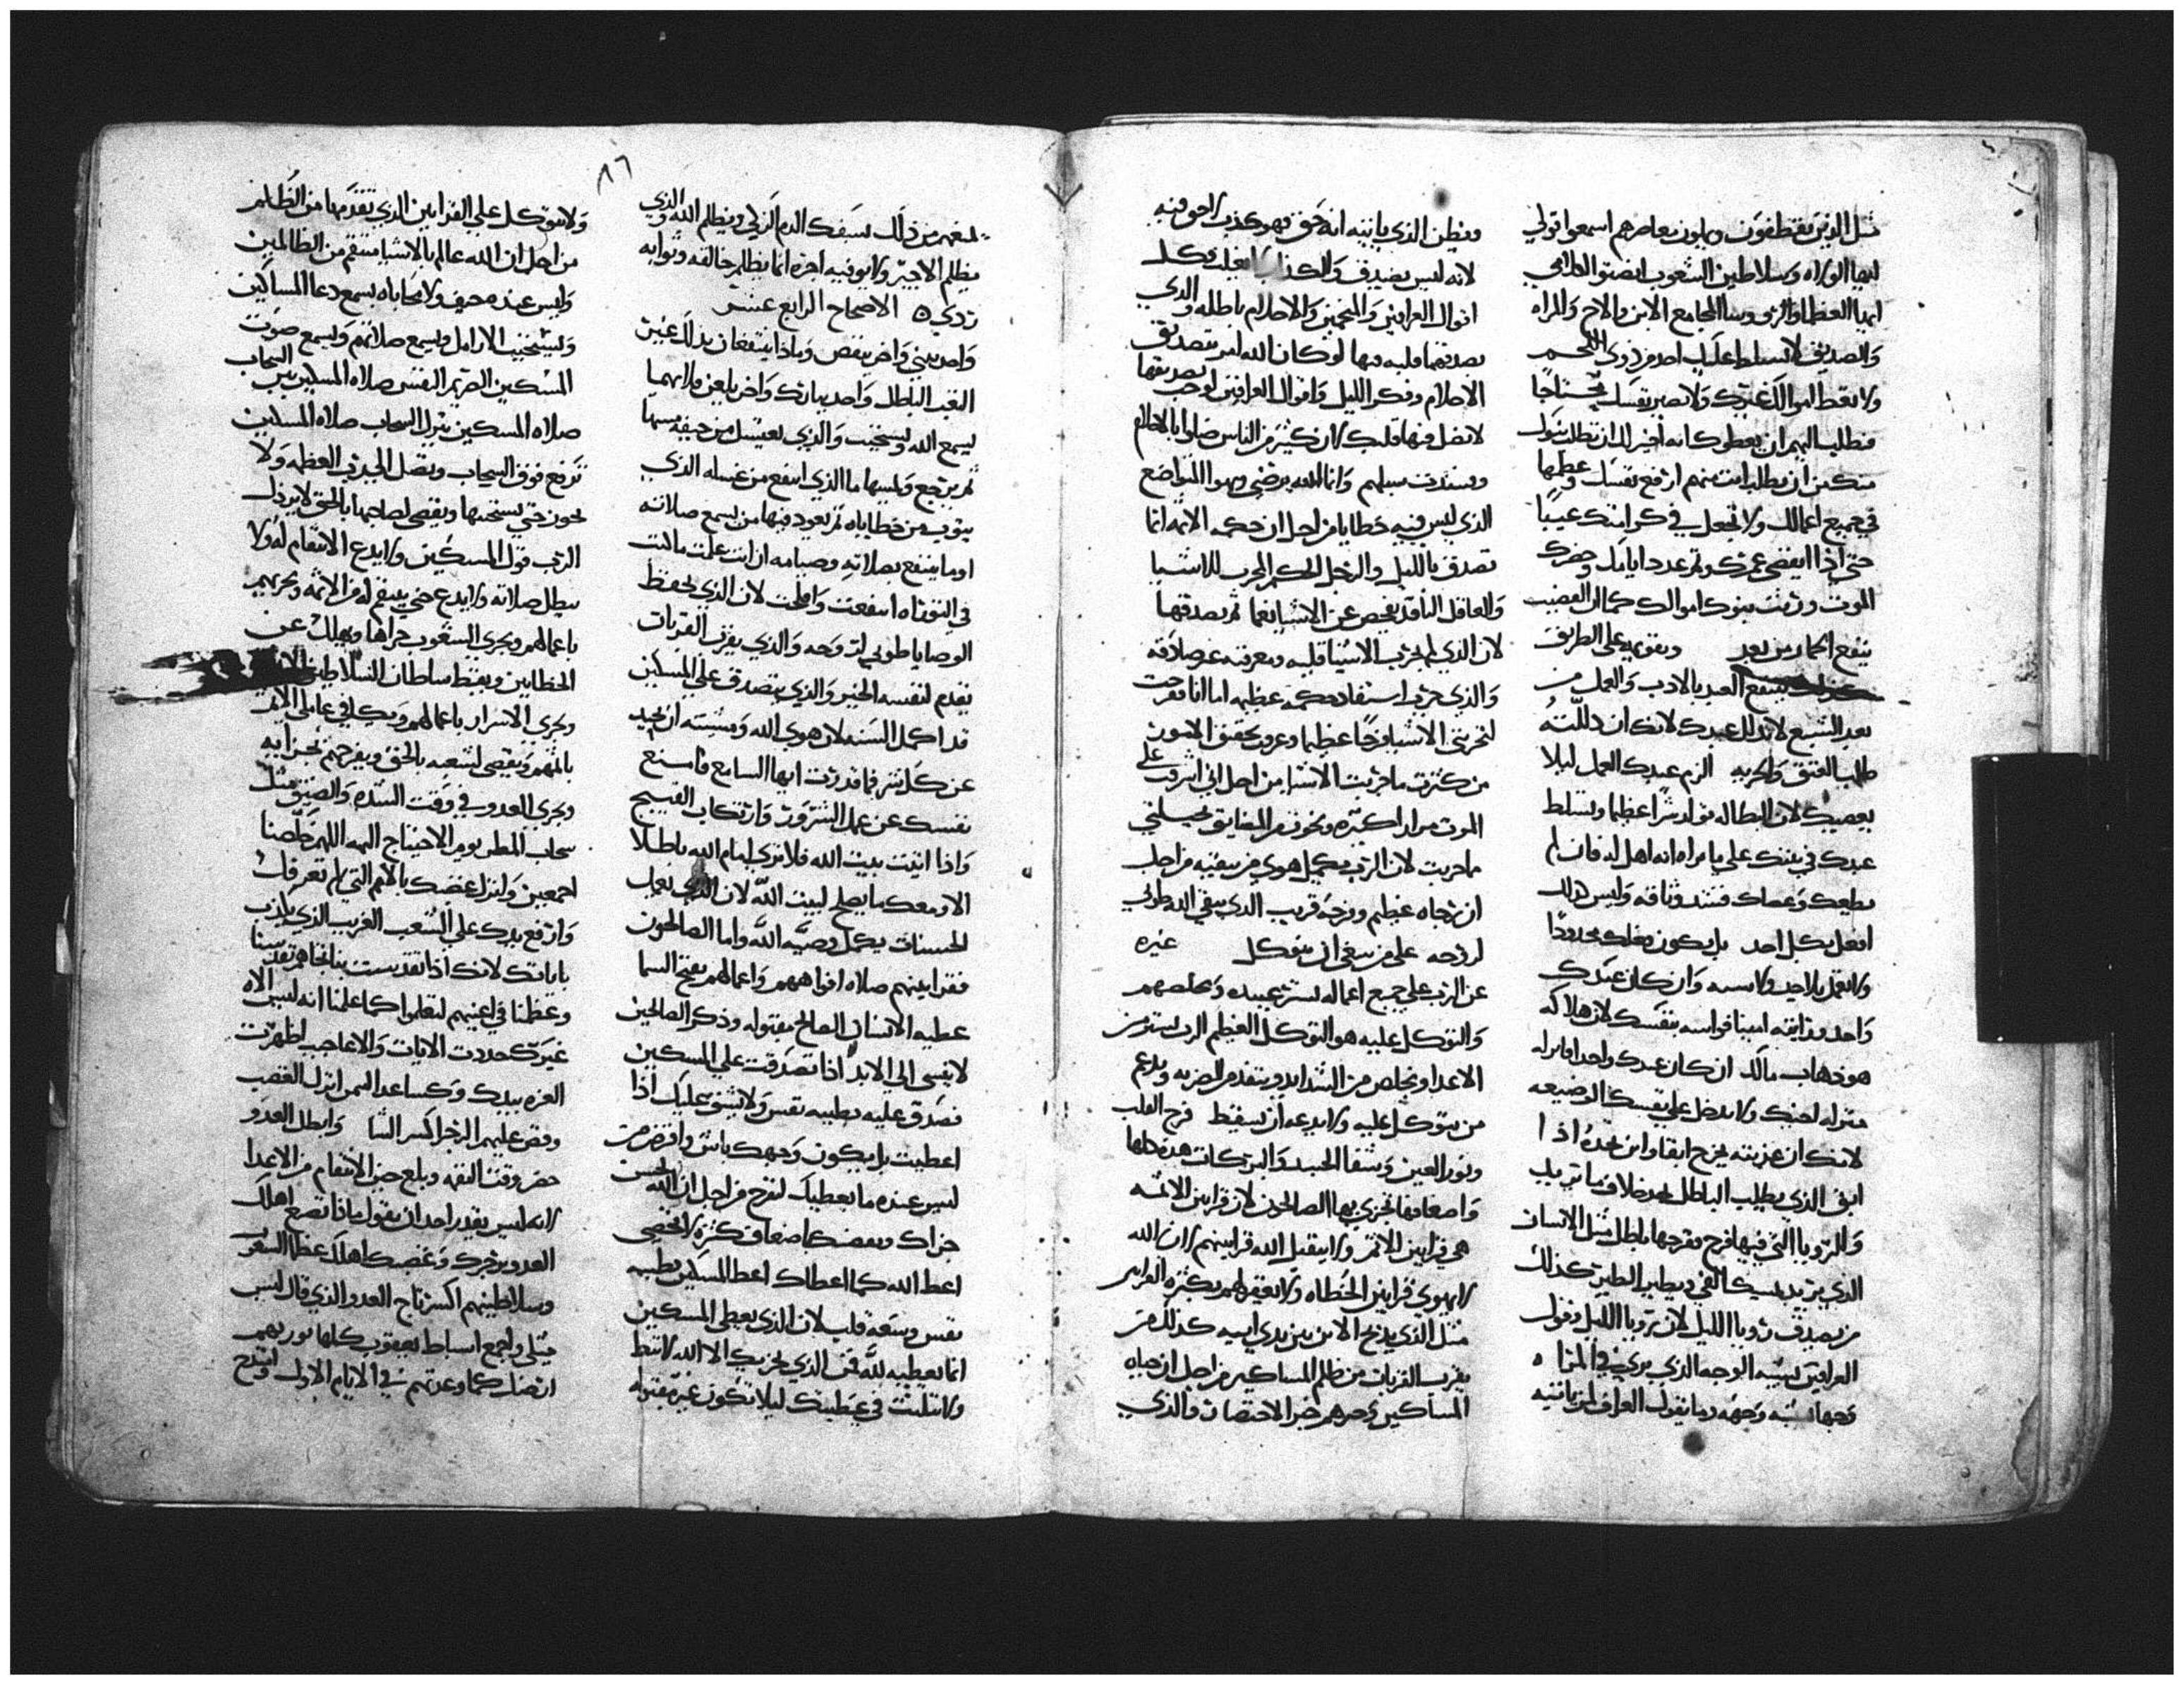 مثل الذين يقتطفون ويملون معاصرهم اسمعوا قولي
ايها الولاه وسلاطين الشعوب انصتوا لكلامي
ايها العظما والروسا المجامع الابن والاخ والمراه
والصديق لا تسلط عليك احد من ذوي اللحم
ولا تعط اموالك غيرك ولا تصير نفسك محتاجا
فتطلب اليهم ان يعطوك انه اخير لك ان تطلب بنوك
منك من ان تطلب انت منهم ارفع نفسك وعظمها
في جميع اعمالك ولا تجعل في كرامتك عيبا
حتي اذا انقضي عمرك وتم عدد ايامك وحضرك
الموت ورثت بنوك اموالك كما ان القضيب
ينفع الحمار من بعد ويقومه علي الطريق
ينتفع العبد بالادب والعمل من
بعد الشبع لا تدلل عبدك لانك ان دللته
طلب العتق والحريه الزم عبدك العمل ليلا
يعصيك لان البطاله تولد شرا عظيما وتسلط
عبدك في بيتك علي ما تراه انه اهل له فان لم
يطيعك وعصاك فشد وثاقه وليس ذلك
افعل بكل احد بل يكون فعلك محدودا
ولا تعمل بلا حد ولا سبب وان كان عبدك
واحد ورايته امينا فواسه بنفسك لان هلاكه
هو ذهاب مالك ان كان عبدك واحد فانزله
منزله اخيك ولا تدخل علي نفسك الوضيعه
لانك ان عزيته يخرج ابقا واين تجده اذا
ابق الذي يطلب الباطل يجد خلاف ما يريد
والرويا التي فيها فرح مفرحها باطل مثل الانسان
الذي يريد يمسك الفي ويطير الطير كذلك
من يصدق رويا الليل لان رويا الليل وقول
العرافين يشبه الوجه الذي يري في المراه
وجها يشبه وجهه وما يقول العراف لمن ياتيه
ويظن الذي ياتيه انه حق فهو كذب لا حق فيه
لانه ليس يصدق والكذاب فكل
اقوال العرافين والمنجمين والاحلام باطله والذي
يصدقها قلبه بها لو كان الله امر بتصديق
الاحلام وفكر الليل واقوال العرافين لوجب تصديقها
لا تضل فيها قلبك لان كثير من الناس ضلوا بالاحلام
وفسدت سبلهم وانما الله يرضي ويهوا التواضع
الذي ليس فيه خطايا من اجل ان حكمه الائمه انما
تصدق بالليل والرجل الحكيم المجرب للاشيا
والعاقل الناقد يفحص عن الاشيا نعما ثم يصدقها
لان الذي لم يجرب الاشيا قلبه ومعرفته
والذي جرب استفاد حكمه عظيمه اما انا ففرحت
لتجربتي الاشيا فرحا عظيما وعرفت تحقيق الامور
من كثرت ما جربت الاشيا من اجل اني اشرفت علي
الموت مرارا كثيره ونجوت من المضايق
ما جربت لان الرب يكمل هوي من يتقيه من اجل
ان رجاه عظيم وفرجه قريب الذي يتقي الله طوبي
لروحه علي من ينبغي ان يتوكل غيره
عن الرب علي جميع اعماله يستر عبيده ويخلصهم
والتوكل عليه هو التوكل العظيم الرب يستر من
الاعدا ويخلص من الشدايد وينقذ من الضربه ويدعم
من يتوكل عليه ولا يدعه ان يسقط فرح القلب
ونور العين وشفا الجسد والبركات هذه كلها
واضعافها تجزي بها الصالحون لان قرابين الاثمه
هي قرابين الاثم ولا يتقبل الله قرابينهم لان الله
لا يهوي قرابين الخطاه ولا يغفر لهم بكثره القرابين
مثل الذي يذبح الابن بين يدي ابيه كذلك من
يقرب القربان من ظلم المساكين من اجل ان حياه
المساكين خبز الاختصاص والذي
يمنعهم من ذلك يسفك الدم الزكي ويظلم الله والذي
يظلم الاجير ولا يوفيه اجره انما يظلم خالقه وثوابه
ردي ٥ الاصحاح الرابع عشر
واحد يبني واخر ينقص وماذا ينتفعان بذلك غير
التعب الباطل واحد يبارك واخر يلعن فلايهما
يسمع الله ويستجيب والذي يغتسل من جيفه مسها
ثم يرجع ويلمسها ما الذي انتفع من غسله الذي
يتوب من خطاياه ثم يعود فيها من يسمع صلاته
او ما ينتفع بصلاته وصيامه ان انت عملت ما كتب
في التوراه انتفعت وافلحت لان الذي يحفظ
الوصايا طوبي لروحه والذي يقرب القربان
يقدم لنفسه الخير والذي يتصدق علي المسكين
قد اكمل السنه لان هوي الله ومشيته ان يحيد
عن كل شر فما قدرت ايها السامع فامنع
نفسك عن عمل الشرور وارتكاب القبيح
واذا اتيت بيت الله فلا تري امام الله باطلا
الا ومعك ما يصلح لبيت الله لان الذي يعمل
الحسنات يكمل وصيه الله واما الصالحون
فقرابينهم صلاه افواههم واعمالهم تفتح السما
عطيه الانسان الصالح مقبوله وذكر الصالحين
لا ينسي الي الابد اذا تصدقت علي المسكين
فصدق عليه بطيبه نفس ولا يشق عليك اذا
اعطيت بل يكون وجهك باش واقرض من
ليس عنده ما يعطيك لتفرح من اجل ان الله يحسن
جزاك ويعوضك اضعاف كثره لا تحصي
اعط الله كما اعطاك اعط المسكين بطيبه
نفس وسعه قلب لان الذي يعطي المسكين
انما يعطيه لله فمن الذي يجزيك الا الله لا تبط
ولا تتلبث في عطيتك ليلا تكون غير مقبوله
٨٦
ولا تتوكل علي القرابين الذي تقدمها من الظلم
من اجل ان الله عالم بالاشيا منتقم من الظالمين
وليس عنده حيف ولا محاباه يسمع دعا المساكين
ويستجيب الارامل ويسمع صلاتهم ويسمع صوت
المسكين الحزين النفس صلاه المسكين السحاب
صلاه المسكين تترك السحاب صلاه المسكين
ترتفع فوق السحاب وتصل الي رب العظمه ولا
تحول حتي يستجيبها ويقضي لصاحبها بالحق لا يرذل
الرب قول المسكين ولا يدع الانتقام له ولا
يبطل صلاته ولا يدع حتي ينتقم له من الاثمه ويجزيهم
باعمالهم ويجزي الشعوب جزاها ويهلك عن
الخطايين ويغيظ سلطان السلاطين
ويجزي الاشرار باعمالهم
ويقضي لشعبه بالحق ويفرحهم
ويجزي العدو في وقت الشده والضيق مثل
سحاب المطر يوم الاحتياج اليه اللهم خلصنا
اجمعين وانزل غضبك بالامم التي لم تعرفك
وارفع يدك علي الشعب الغريب الذي يكذب
باياتك لانك اذا تقدست بنا تجاههم تقدسنا
وعظمنا في اعينهم لتعلموا كما علمنا انه ليس الاه
غيرك جددت الايات والاعاجيب اظهرت
العزه بيدك وكساعد اليمين انزل الغضب
وافض عليهم الرجز اكسر الشا وابطل العدو
حضر وقت النقمه وبلغ حين الانتقام من الاعدا
لانه ليس يقدر احد ان يقول ماذا تصنع اهلك
العدو برجزك وغضبك اهلك عظما الشعوب
وسلاطينهم اكسر تاج العدو الذي قال ليس
مثلي واجمع اسباط يعقوب كلها نوريهم
ارضك كما وعدتهم في الايام الاول افتح